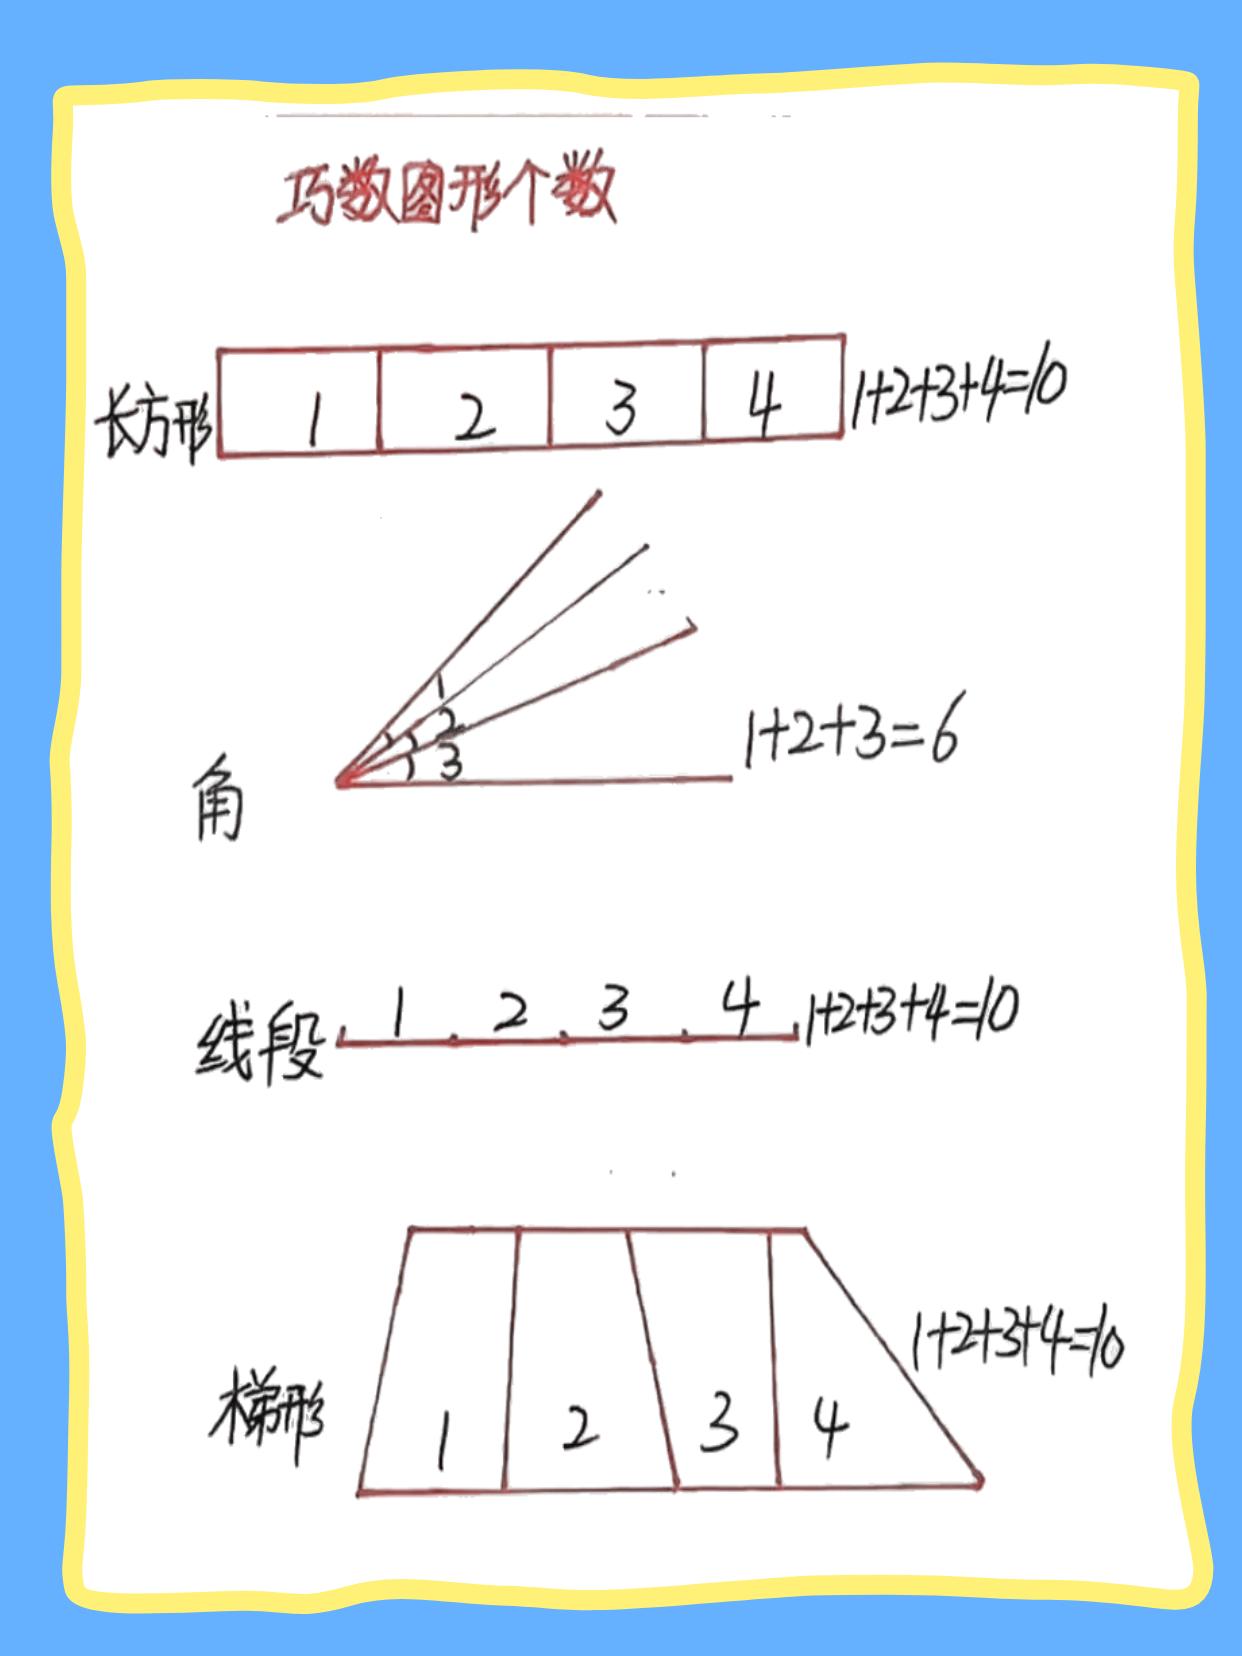 巧数图形个数
长方形 1 2 3 4 1+2+3+4=10
1
2
3
1+2+3=6
角
线段 1 2 3 4 1+2+3+4=10
1+2+3+4=10
梯形 1 2 3 4